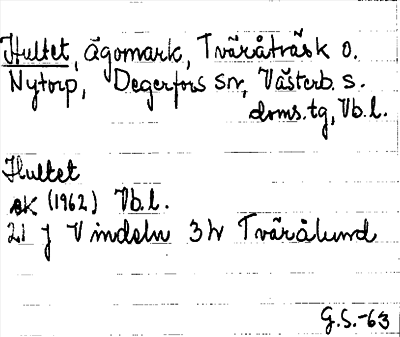 Hultet, ägomark, Tväråträsk o.
Nytorp, Degerfors sn, Västerb. s.
doms.tg, Vb.l.
Hultet
ek (1962) Vb.l.
21 J Vindeln 3h Tvärålund
G.S.-63